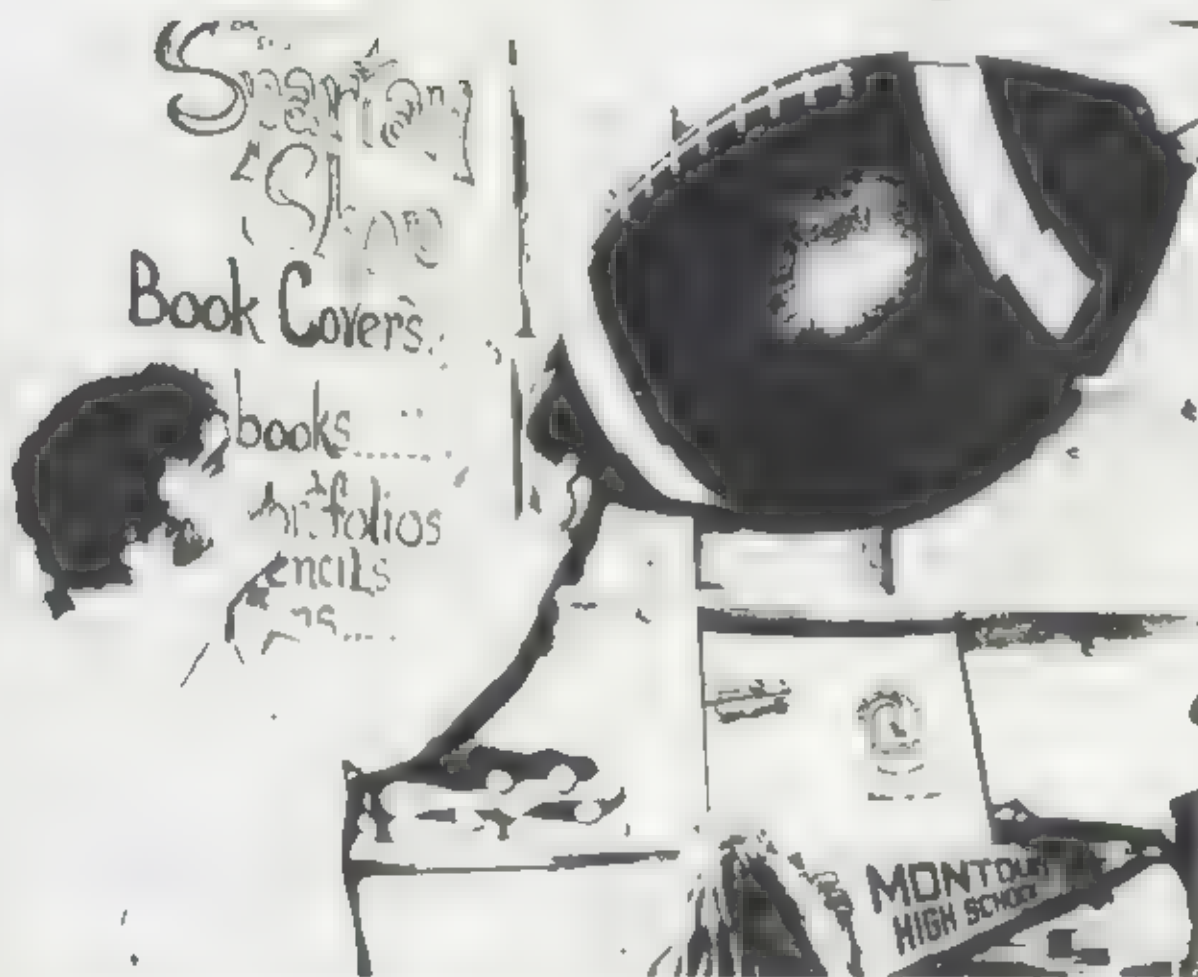 Spartan
Shop
Book Covers
books
folios
encils
MONTOUR
HIGH SCHOOL